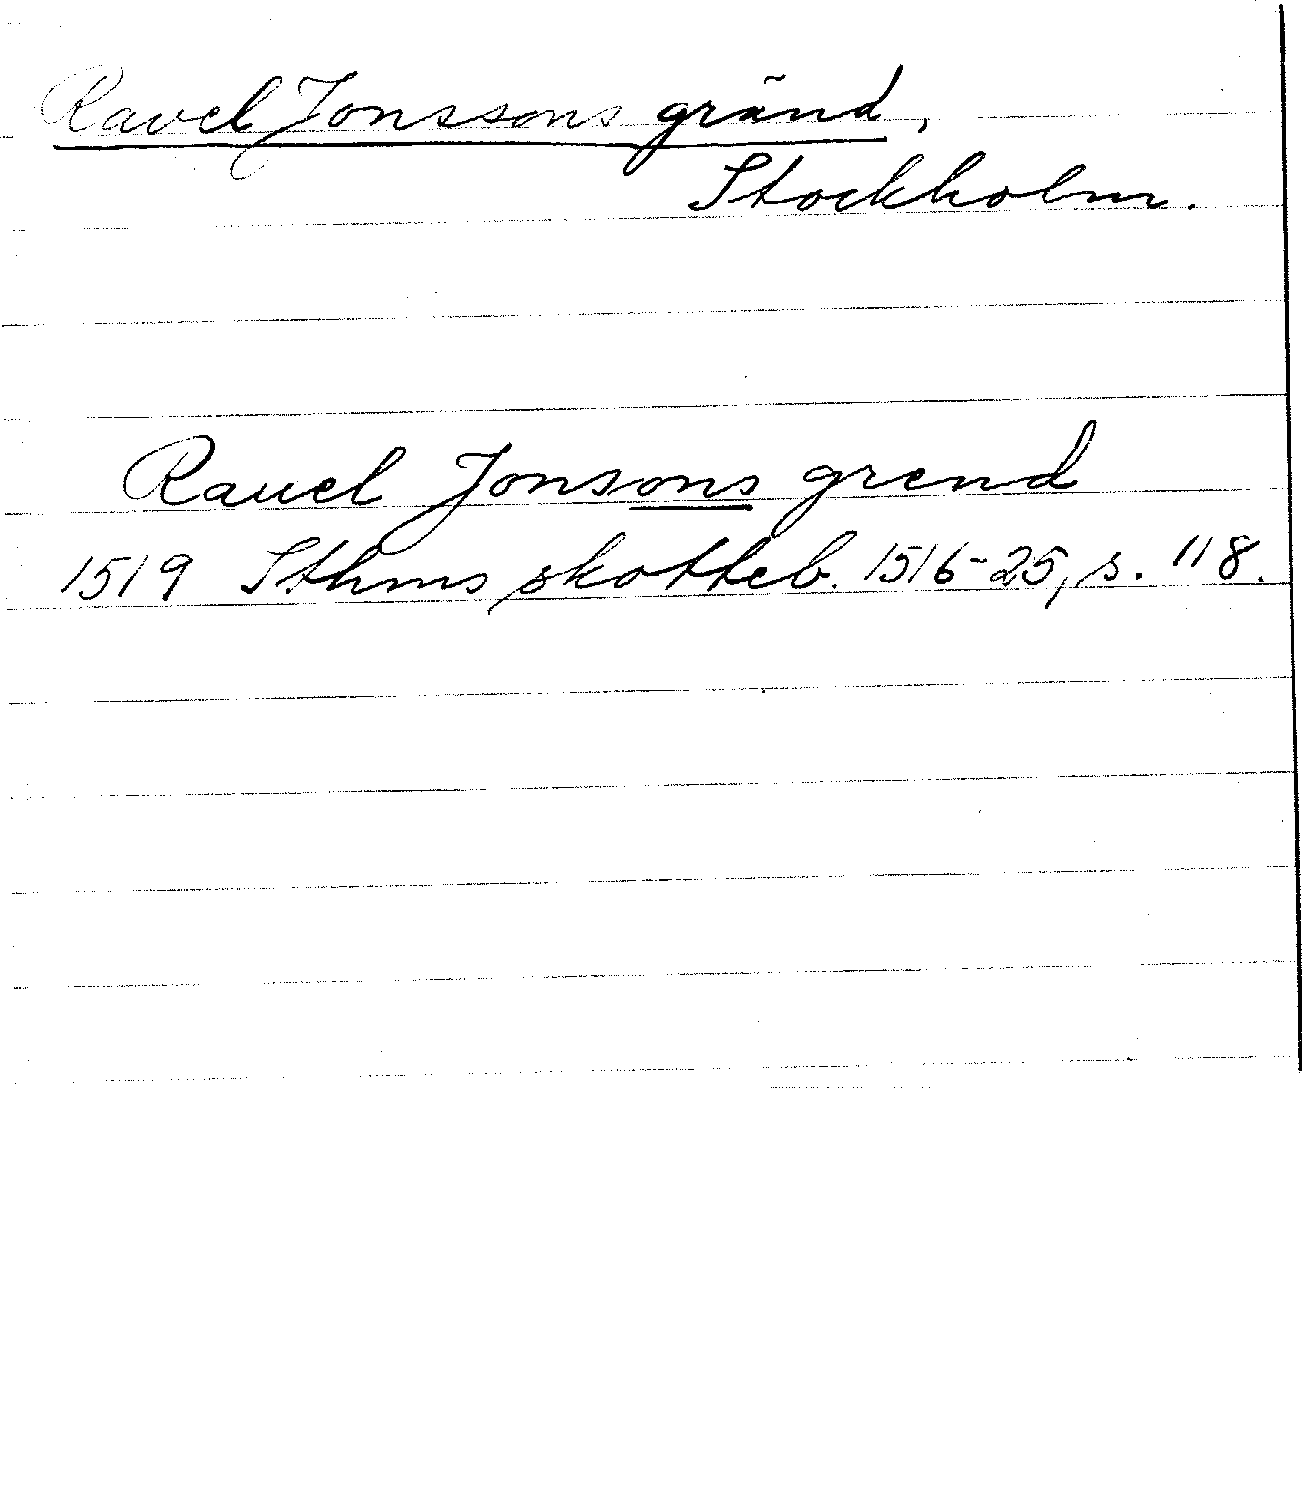 Ravel Jonssons gränd,
Stockholm.
Rauel Jonsons grend
1519 Sthms skotteb. 1516-25, s. 118.